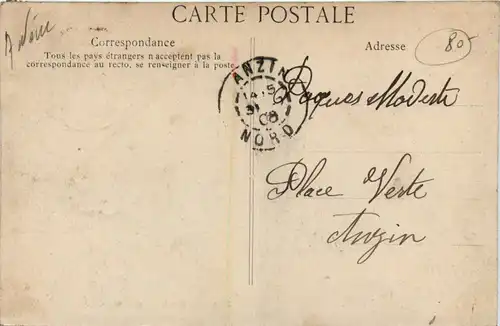 CARTE POSTALE
Correspondance
Tous les pays étrangers n'acceptent pas la
correspondance au recto, se renseigner à la poste
Adresse
80
ANZIN
08
NORD
Paques Modeste
Place Verte
Anzin